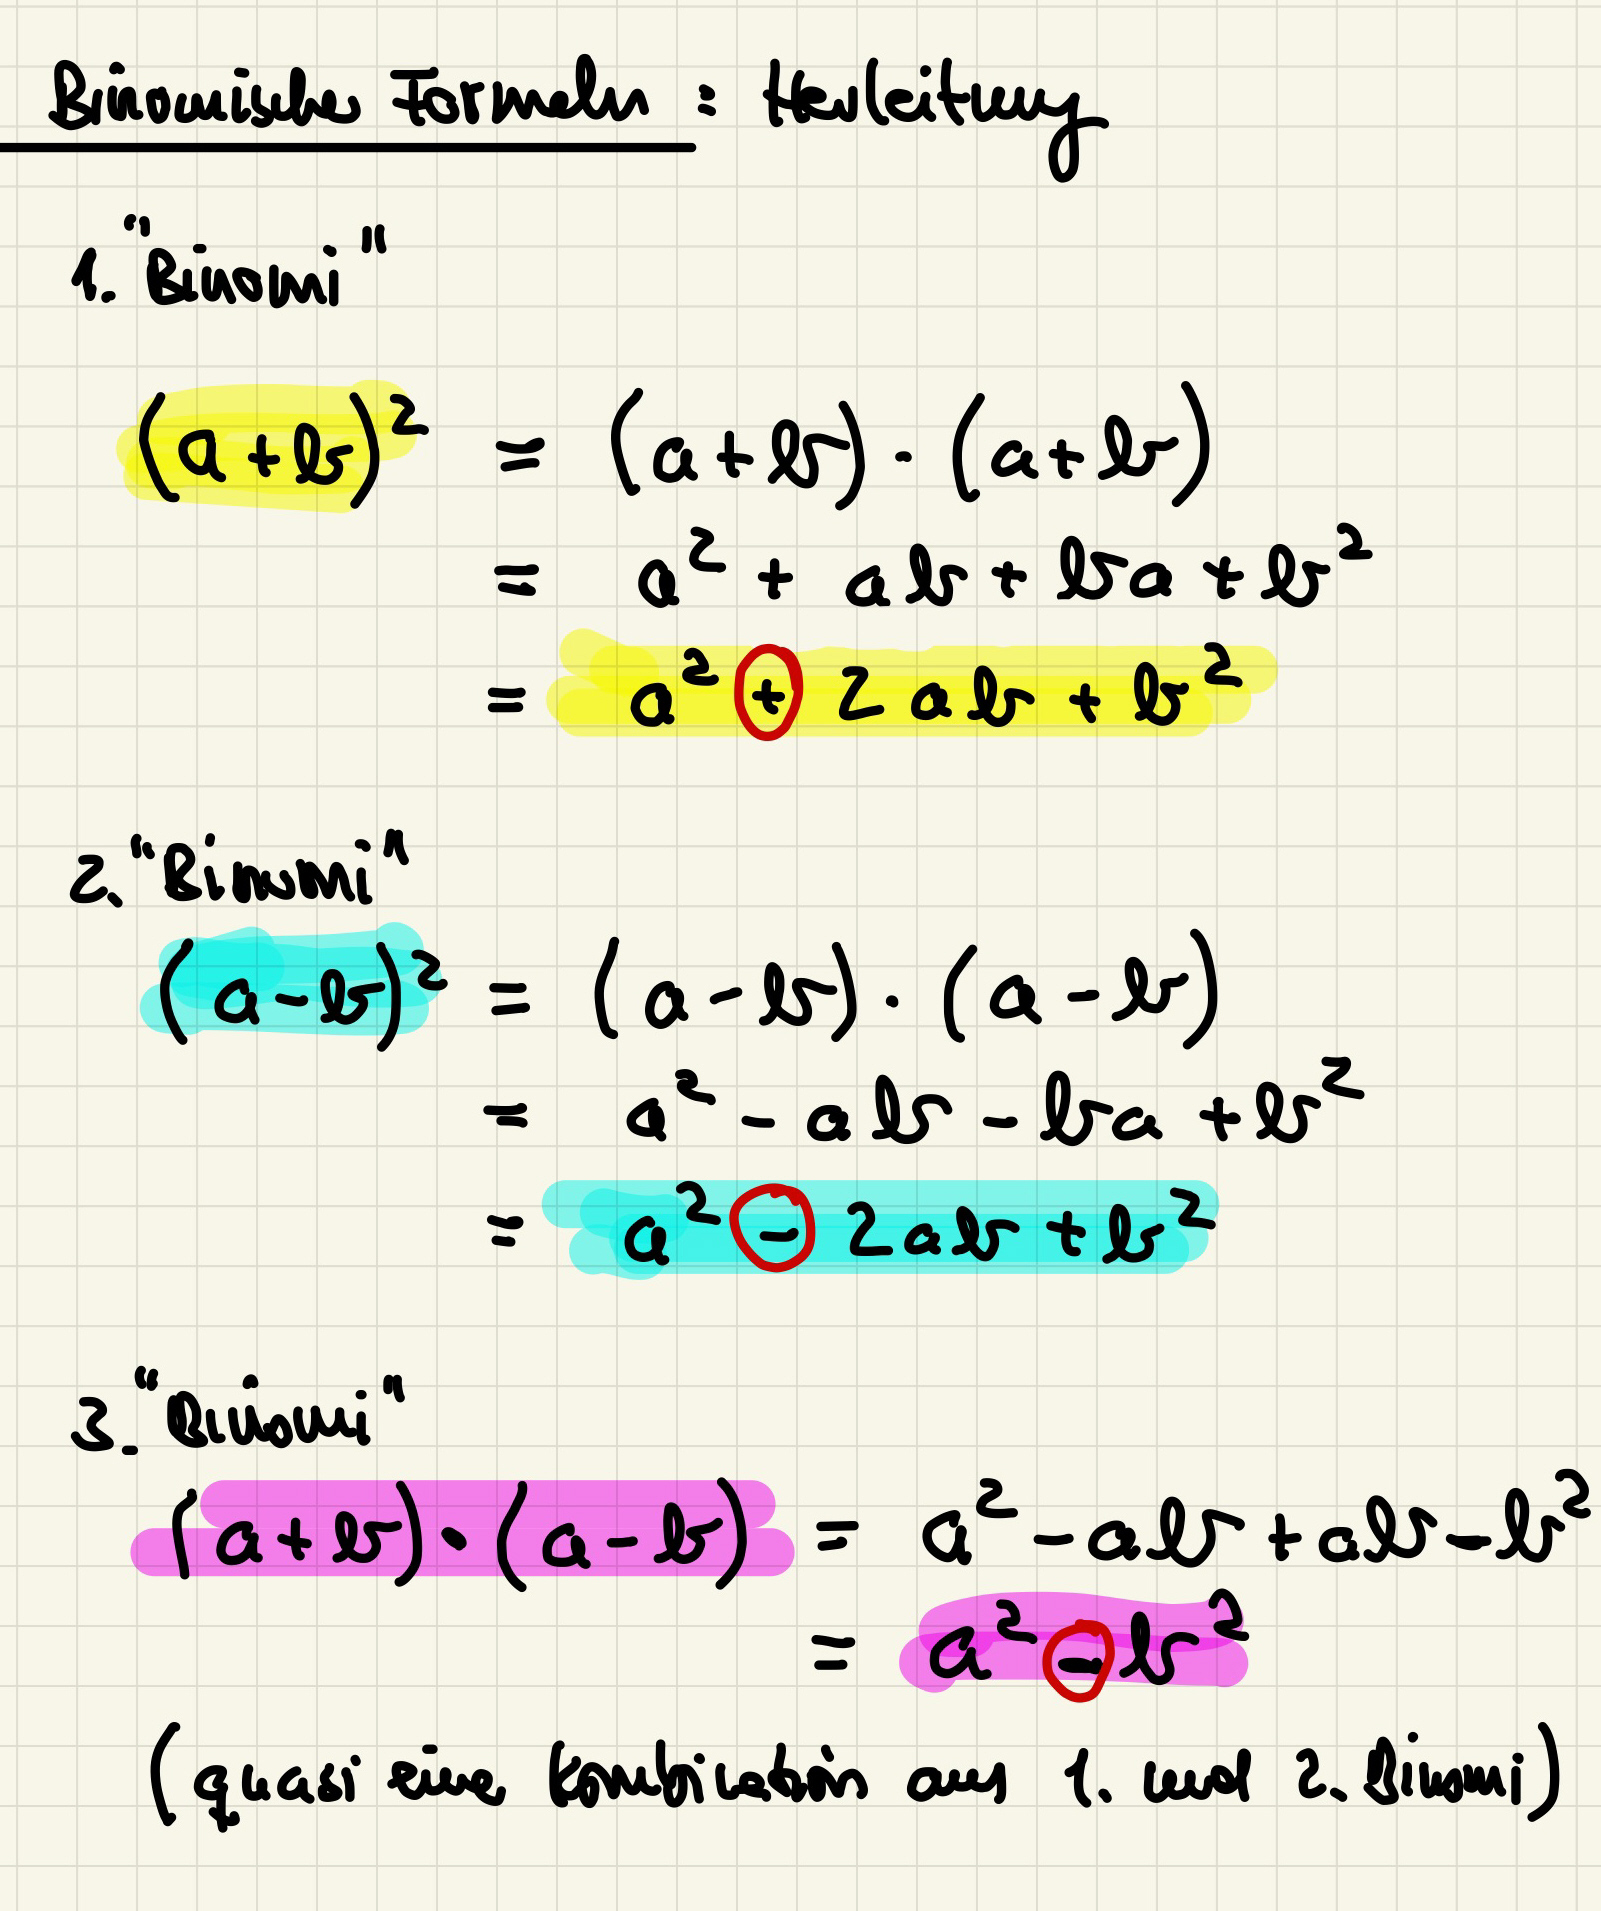 Binomische Formeln : Herleitung
1. "Binomi"
(a+b)² = (a+b) · (a+b)
= a² + ab + ba + b²
= a² + 2ab + b²
2. "Binomi"
(a-b)² = (a-b) · (a-b)
= a² - ab - ba + b²
= a² - 2ab + b²
3. "Binomi"
(a+b) · (a-b) = a² - ab + ab - b²
= a² - b²
(quasi eine Kombination aus 1. und 2. Binomi)